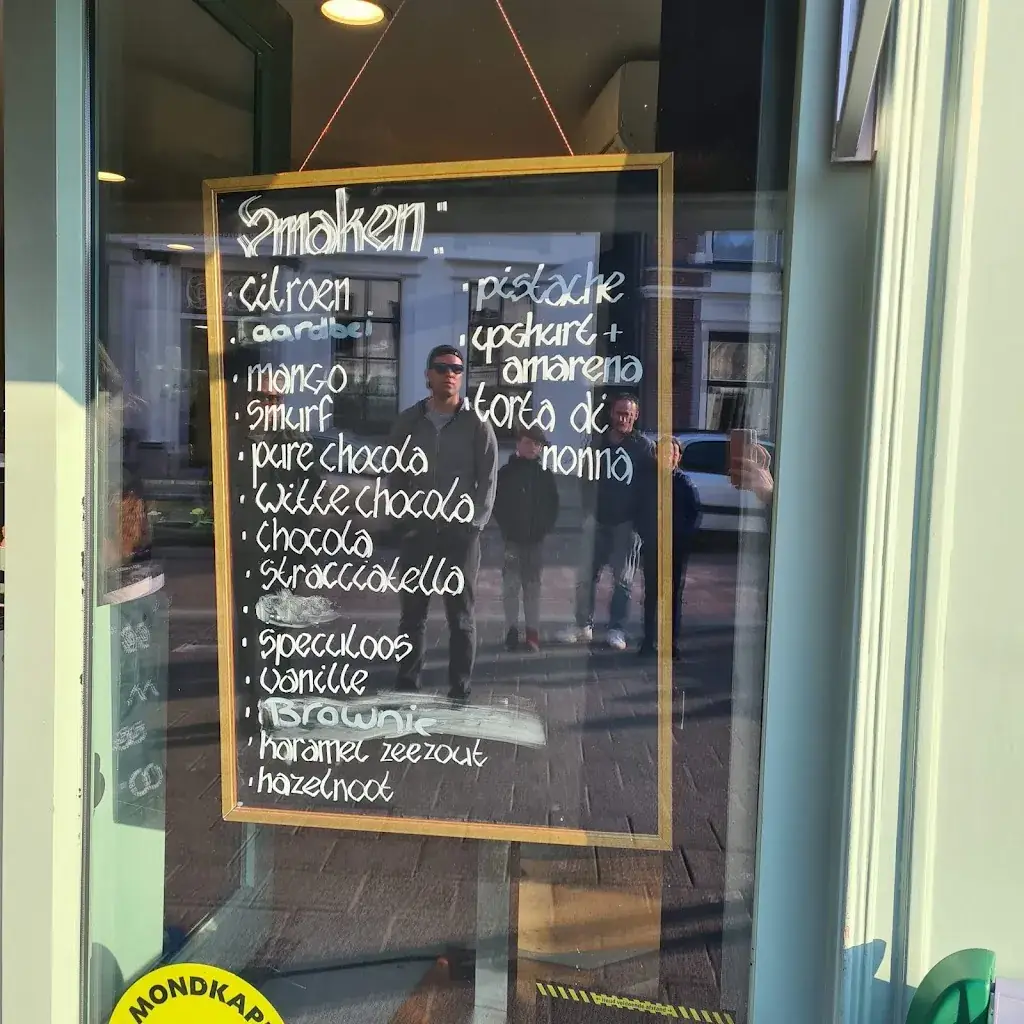 Smaken:
• citroen
• aardbei
• mango
• smurf
• pure chocola
• witte chocola
• chocola
• stracciatella
•
• speculoos
• vanille
• Brownie
• karamel zeezout
• hazelnoot
• pistache
• yoghurt +
amarena
• torta di
nonna
MONDKAP